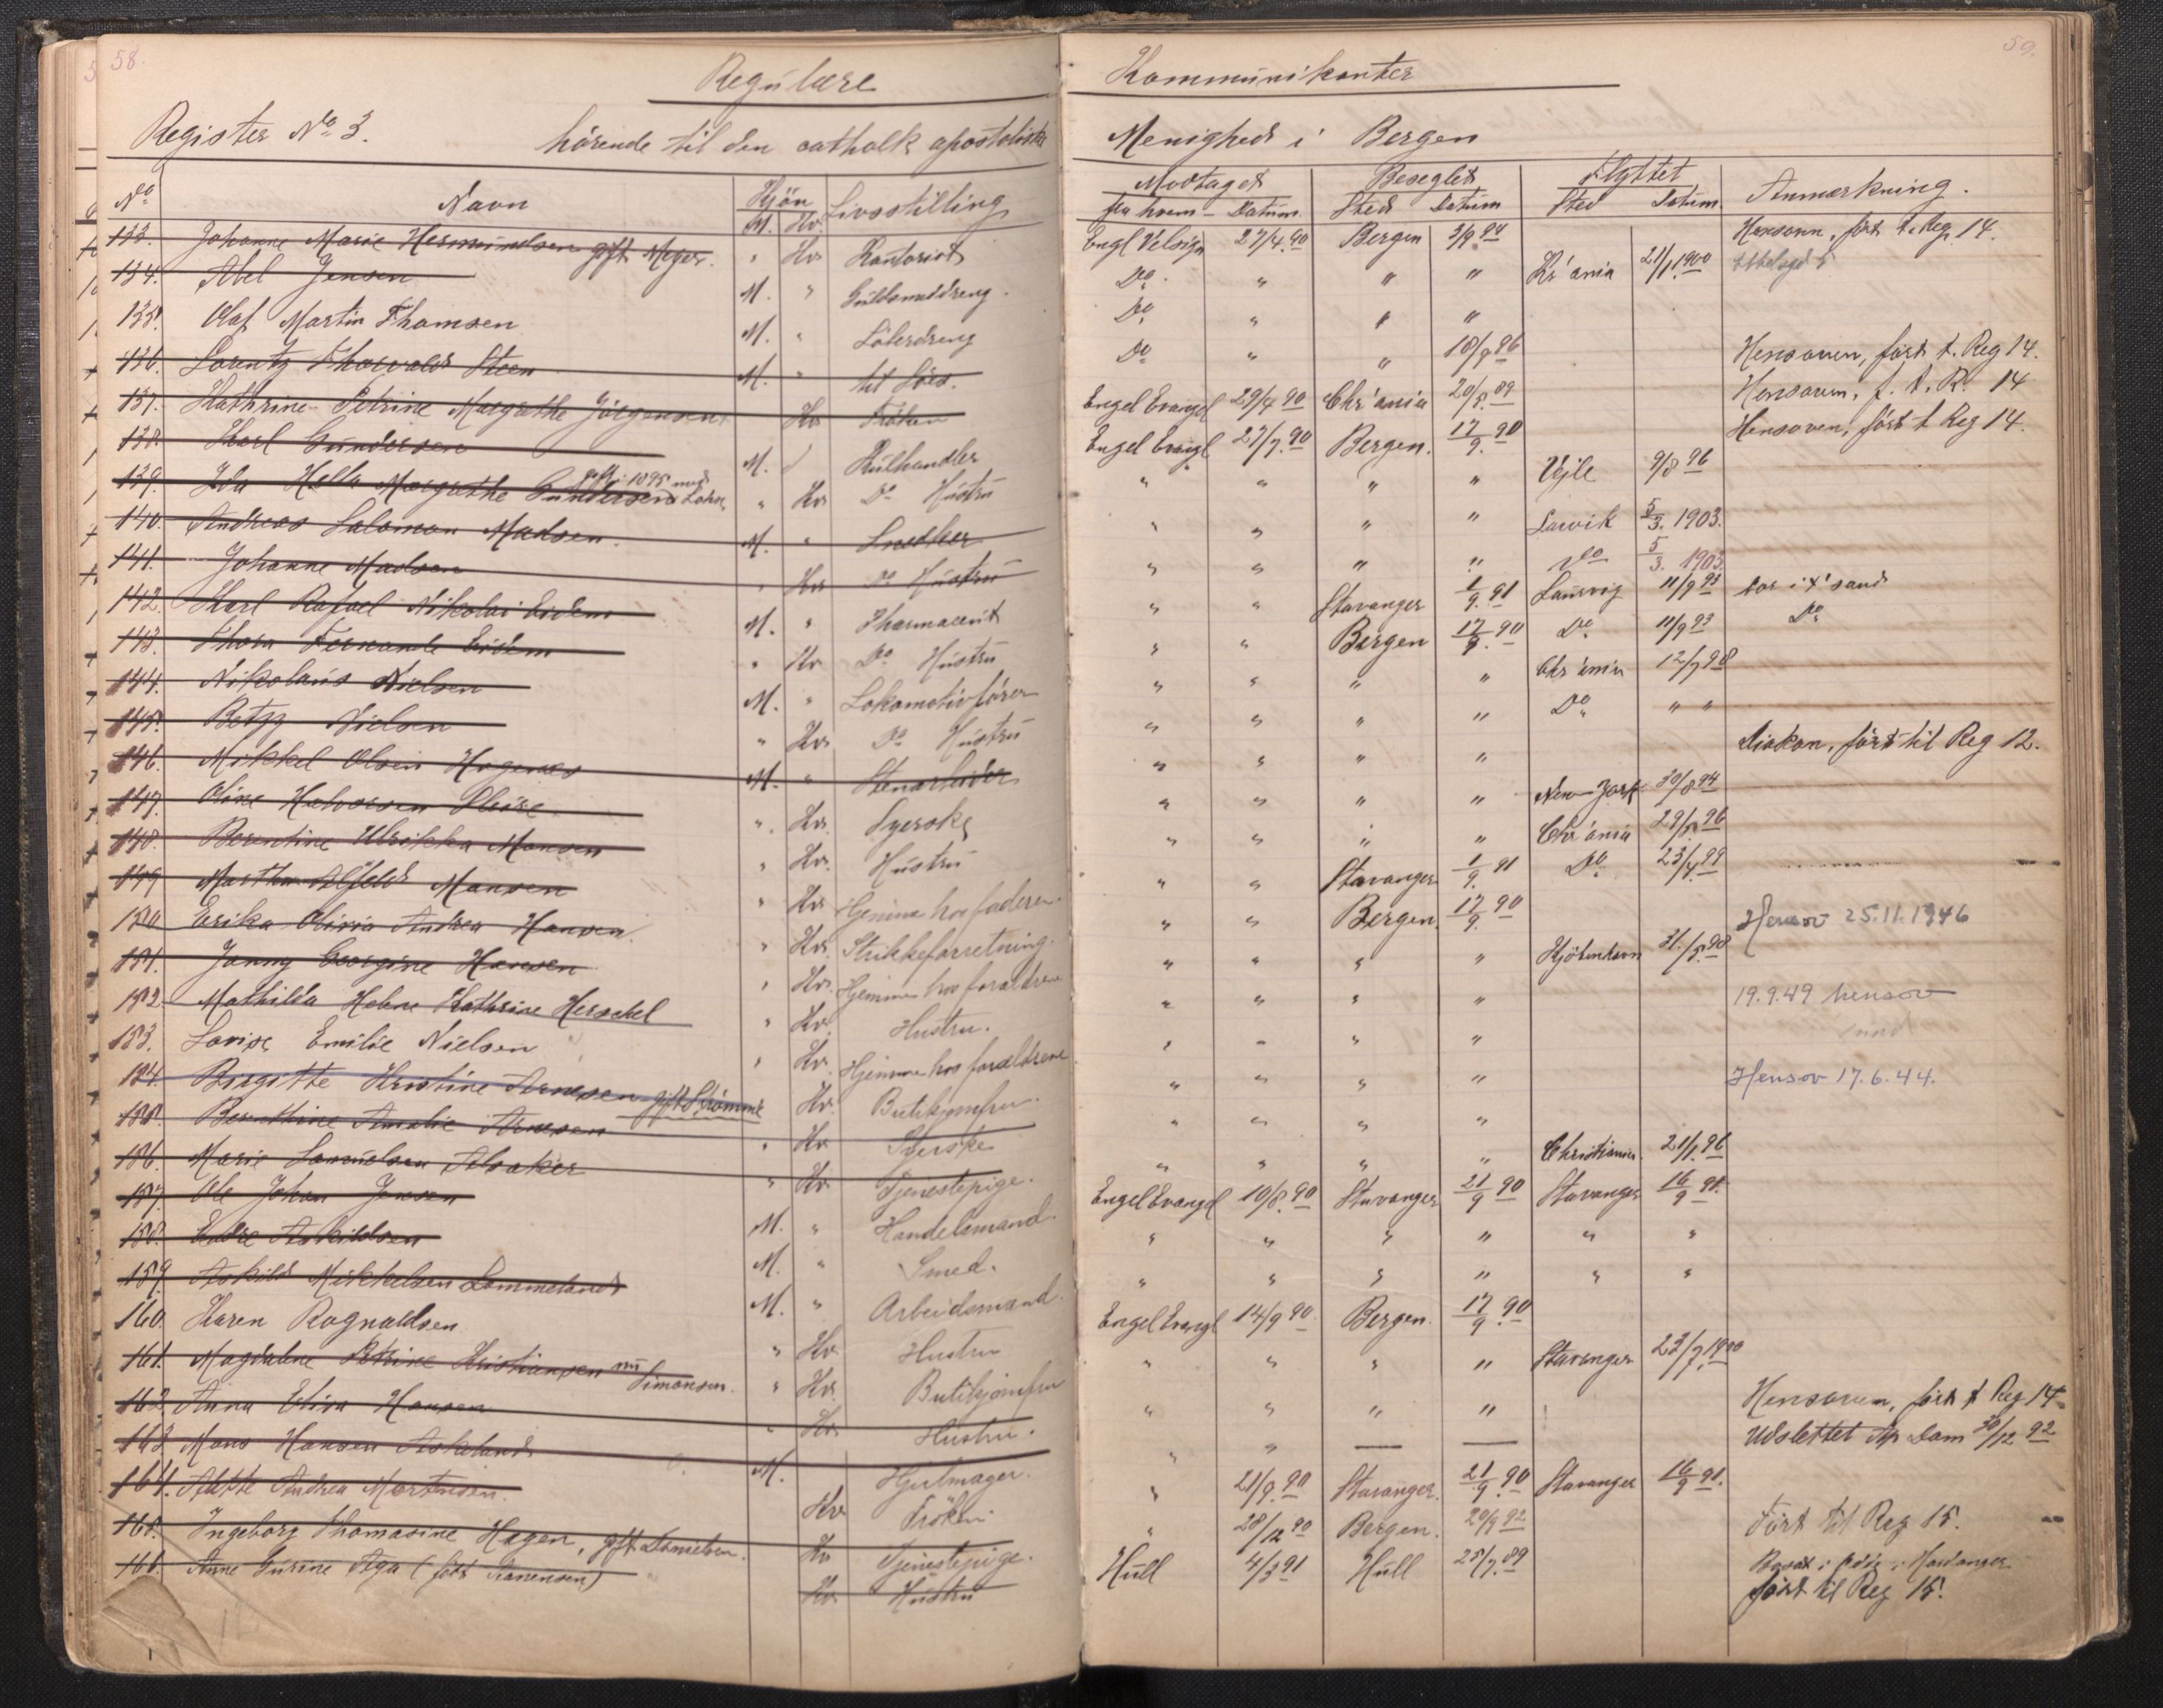 58.
Regulære
Register No 3.
hörende til den catholk apostoliske
No Navn Kjön Livsstilling
M. Kv.
133. Johanne Marie Hermundsen gift Meyer. " Kv Kontorist
134. Abel Jensen M. " Guldsmeddreng.
135. Olaf Martin Thomsen M. " Löberdreng
136. Lorentz Thorvald Steen M. " til Söes.
137. Kathrine Petrine Margrethe Jörgensen Kv Fröken
138. Karl Gundersen M. Kulhandler
139. Ida Hella Margrethe Gundersen gift i 1895 med " Kv Do Hustru
140. Andreas Salomon Madsen. M. " Snedker
141. Johanne Madsen " Kv Do Hustru
142. Karl Rafael Nikolai Eidem M. " Pharmaceut
143. Thora Fernanda Eidem " Kv Do Hustru
144. Nikolaus Nielsen M. " Lokomotivförer
145. Betzy Nielsen " Kv Do Hustru
146. Mikkel Olsen Hagenes M. " Stenarbeider
147. Oline Halvorsen " Kv. Syerske
148. Berentine Ulrikka Monsen " Kv. Hustru
149 Martha Alfild Monsen " Kv Hjemme hos faderen.
150 Erika Olivia Andrea Hansen. " Kv. Strikkeforretning.
151. Jonny Georgine Hansen " Kv. Hjemme hos forældrene
152. Mathilda Helene Kathrine Herschel " Kv. Hustru.
153. Lovise Emilie Nielsen " Kv. Hjemme hos forældrene
154. Birgitte Kristine Arnesen gift Strömme Kv. Butikjomfru.
155. Berntine Amalie Arnesen " Kv. Syerske
156. Marie Samuelsen Alsaker " Kv. Tjenestepige.
157. Ole Johan Jensen M. " Handelsmand.
158. Endre Askildsen M. " Smed.
159. Askild Mikkelsen Lammeland M. " Arbeidsmand.
160 Karen Rognaldsen " Kv. Hustru
161. Magdalene Petrine Kristiansen nu Simonsen. " Kv. Butikjomfru
162. Anna Elisa Hansen " Kv. Hustru.
163 Mons Hansen Askeland M. Hjulmager.
164. Alette Andrea Mortensen. Kv. Fröken.
165. Ingeborg Thomasine Hagen, gift Danielsen. Kv Tjenestepige.
166. Anne Gurine Aga (född Aanensen) Kv. Hustru
59.
Kommunikanter
Menighed i Bergen
Modtaget Beseglet Flyttet Anmærkning.
fra hvem - Datum. Sted Datum Sted Datum
Engl Velsign 27/4.90 Bergen 3/9 94 Hensoven, fört t. Reg 14.
Do. " " " Kr'ania 21/1 1900
Do " " "
Do " " 10/9 96 Hensoven, fört t. Reg 14.
Engel Evangel 29/4 90 Chr'ania 20/5.89 Hensoven, f. t. R. 14
Engel Evangl 27/7.90 Bergen. 17/9. 90 Hensoven, fört t Reg 14.
" " " " Vejle 9/8 96
" " " " Larvik 5/3. 1903.
" " " " Do 5/3. 1903.
" " Stavanger 1/9. 91 Laurvig 11/9 93 bor i X'sand
" " Bergen 17/9. 90 Do 11/9 93 Do
" " " " Chr'ania 12/7 98
" " " " Do " "
" " " " Diakon, fört til Reg 12.
" " " " New York 30/8 94
" " " " Chr'ania 29/5. 96
" " Stavanger 1/9. 91 Do 23/4. 99
" " Bergen 17/9. 90 Hensov 25.11.1946
" " " " Kjöbenhavn 31./5. 98
" " " " 19.9.49 hensov
" " " "
" " " " Hensov 17.6.44.
" " " "
" " " " Christiania. 21/1. 96
Engel Evangel 10/8. 90 Stavanger 21/9 90 Stavanger 16/9 91.
" " " " " "
" " " " " "
Engel Evangl 14/9 90 Bergen. 17/9. 90
" " " " Stavanger 23/7. 1900
" " " " Hensoven, fört t Reg 14
" " — — Udslettet Ap Dom 30/12 92
" 21/9. 90 Stavanger. 21/9. 90 Stavanger 16/9 91.
" 28/12 90 Bergen. 20/9 92 Fört til Reg 15.
Hull 4/3 91 Hull 25/7. 89 Bosat i Odde i Hardanger
fört til Reg 15.